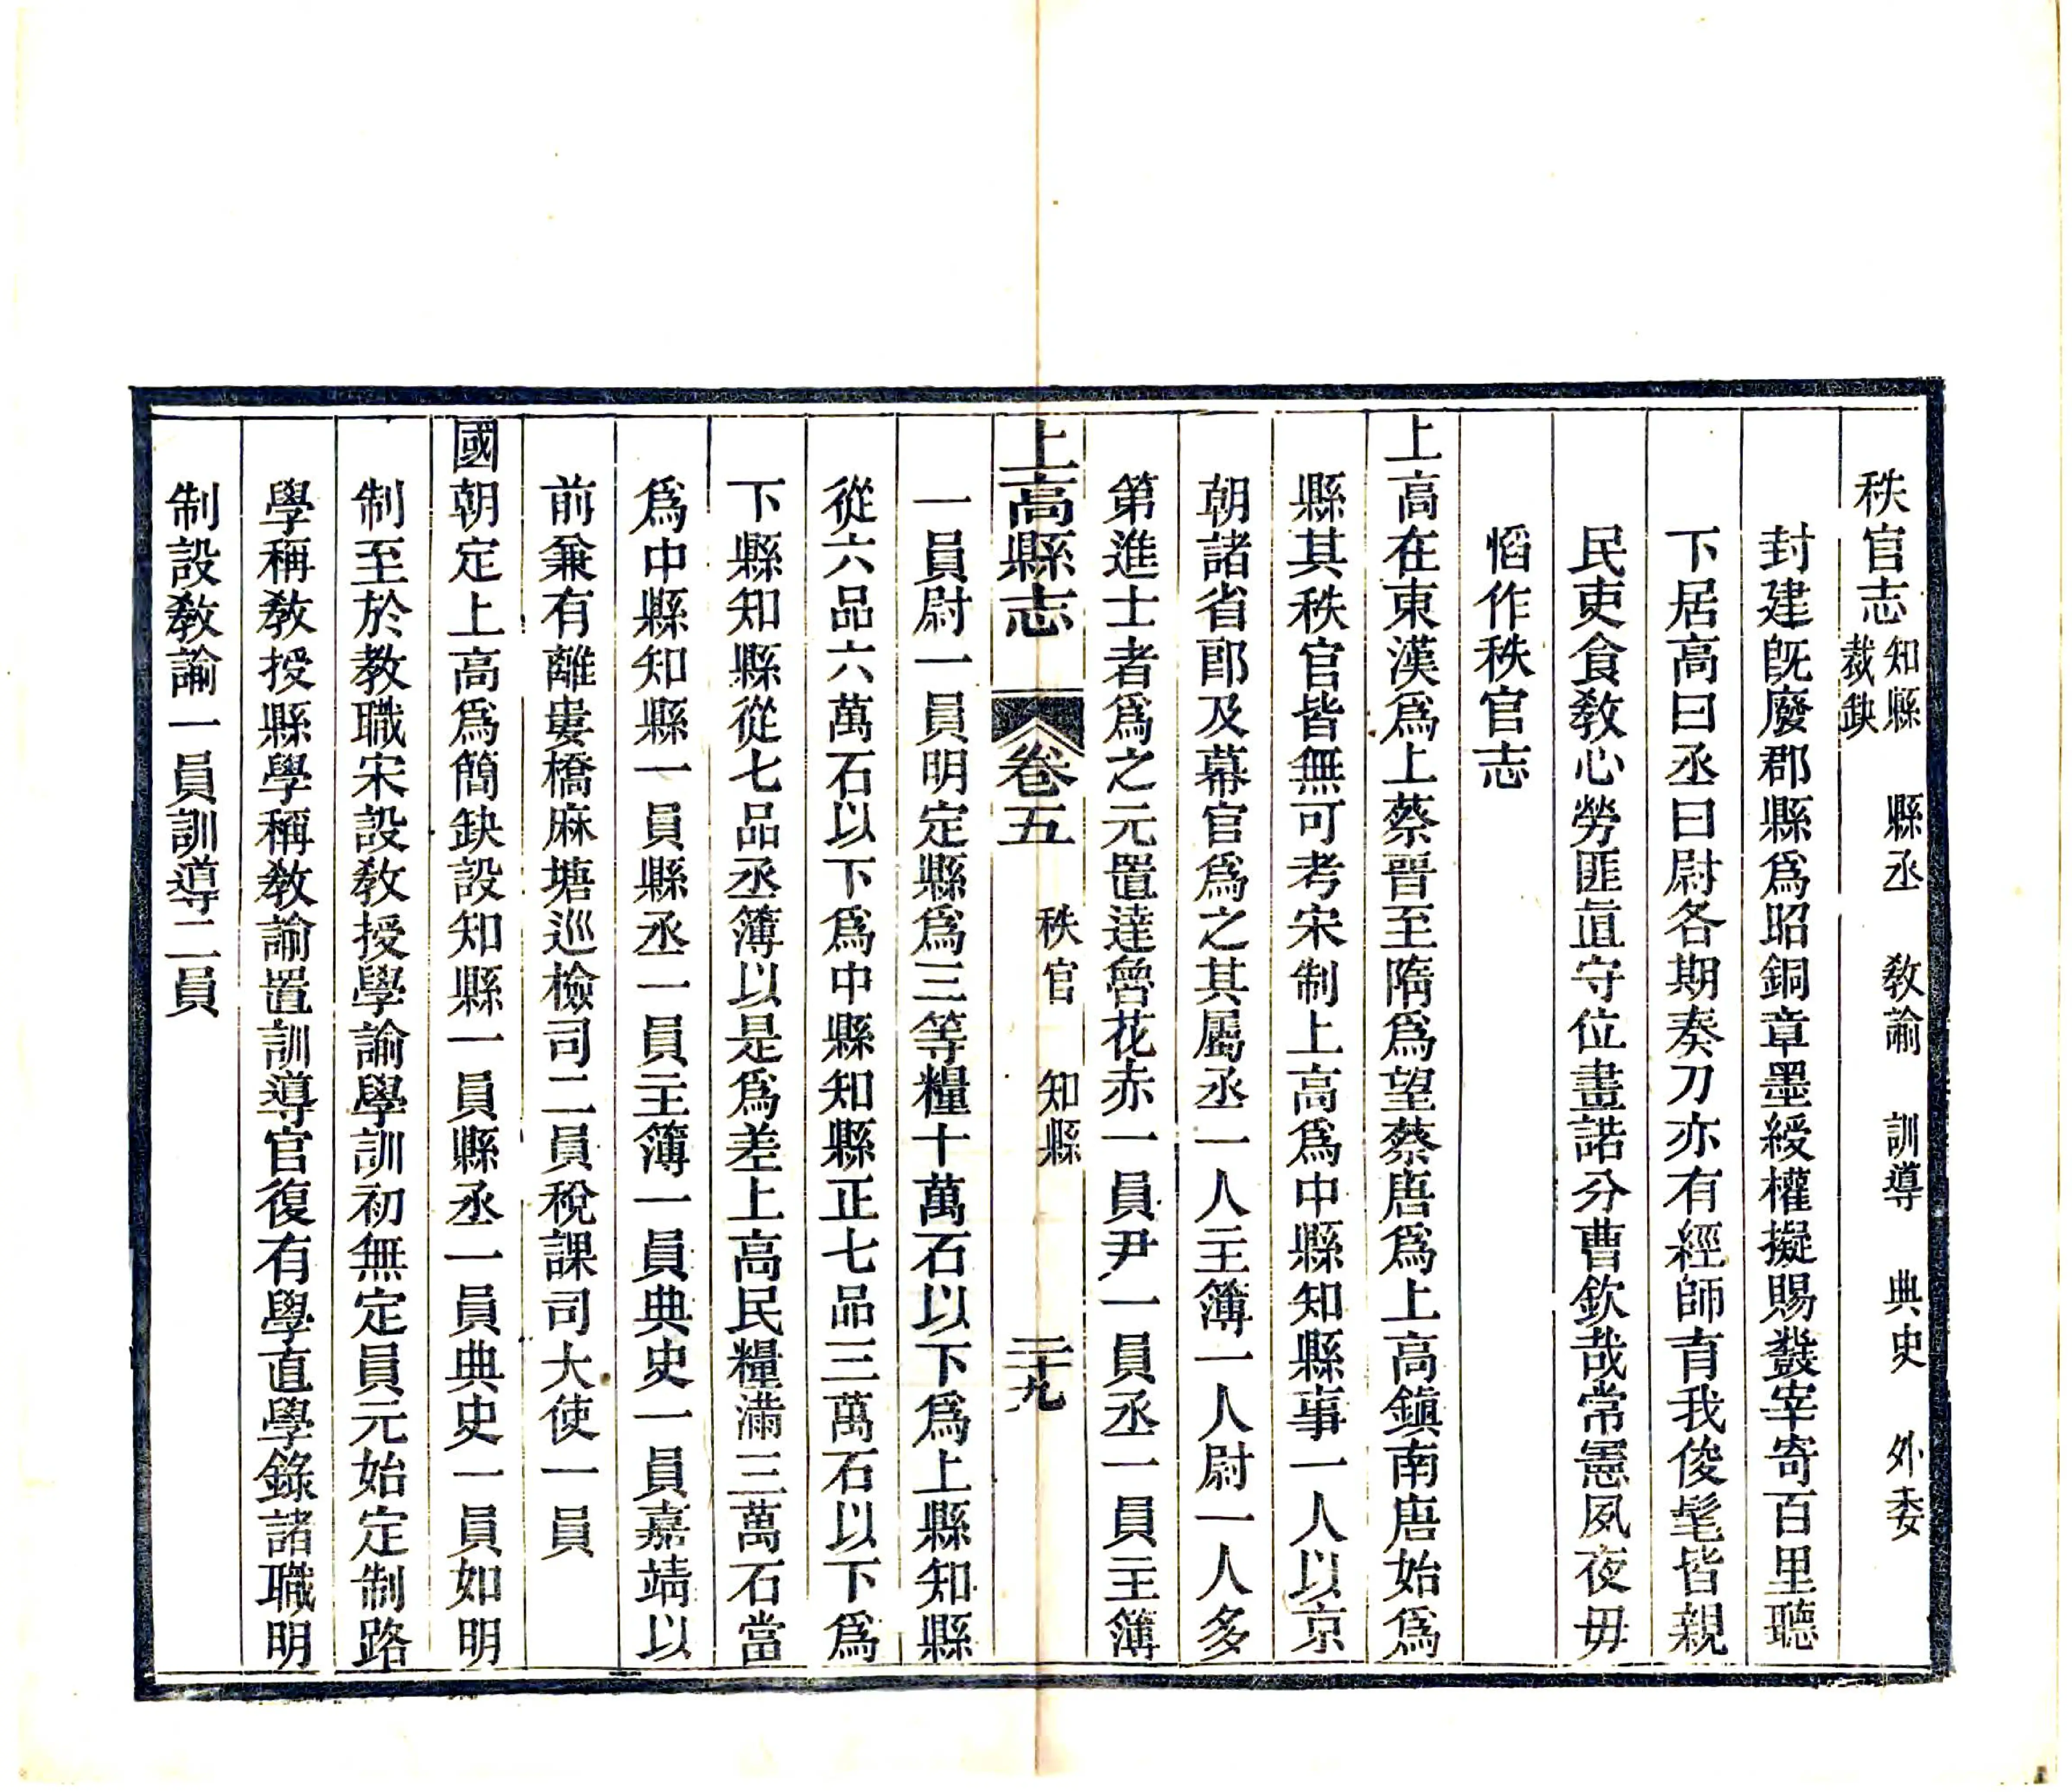 秩官志 知縣 縣丞 敎諭 訓導 典史 外委 裁缺
封建旣廢郡縣爲昭銅章墨綬權擬賜發宰寄百里聽
下居高曰丞曰尉各期奏刀亦有經師育我俊髦皆親
民吏食敎心勞匪直守位晝誥分曹欽哉常憲夙夜毋
慆作秩官志
上高在東漢爲上蔡晉至隋爲望蔡唐爲上高鎭南唐始爲
縣其秩官皆無可考宋制上高爲中縣知縣事一人以京
朝諸省郎及幕官爲之其屬丞一人主簿一人尉一人多
第進士者爲之元置達魯花赤一員尹一員丞一員主簿
上高縣志 卷五 秩官 知縣 二十九
一員尉一員明定縣爲三等糧十萬石以下爲上縣知縣
從六品六萬石以下爲中縣知縣正七品三萬石以下爲
下縣知縣從七品丞簿以是爲差上高民糧滿三萬石當
爲中縣知縣一員縣丞一員主簿一員典史一員嘉靖以
前兼有離婁橋麻塘巡檢司二員稅課司大使一員
國朝定上高爲簡缺設知縣一員縣丞一員典史一員如明
制至於教職宋設敎授學諭學訓初無定員元始定制路
學稱敎授縣學稱敎諭置訓導官復有學直學錄諸職明
制設敎諭一員訓導二員